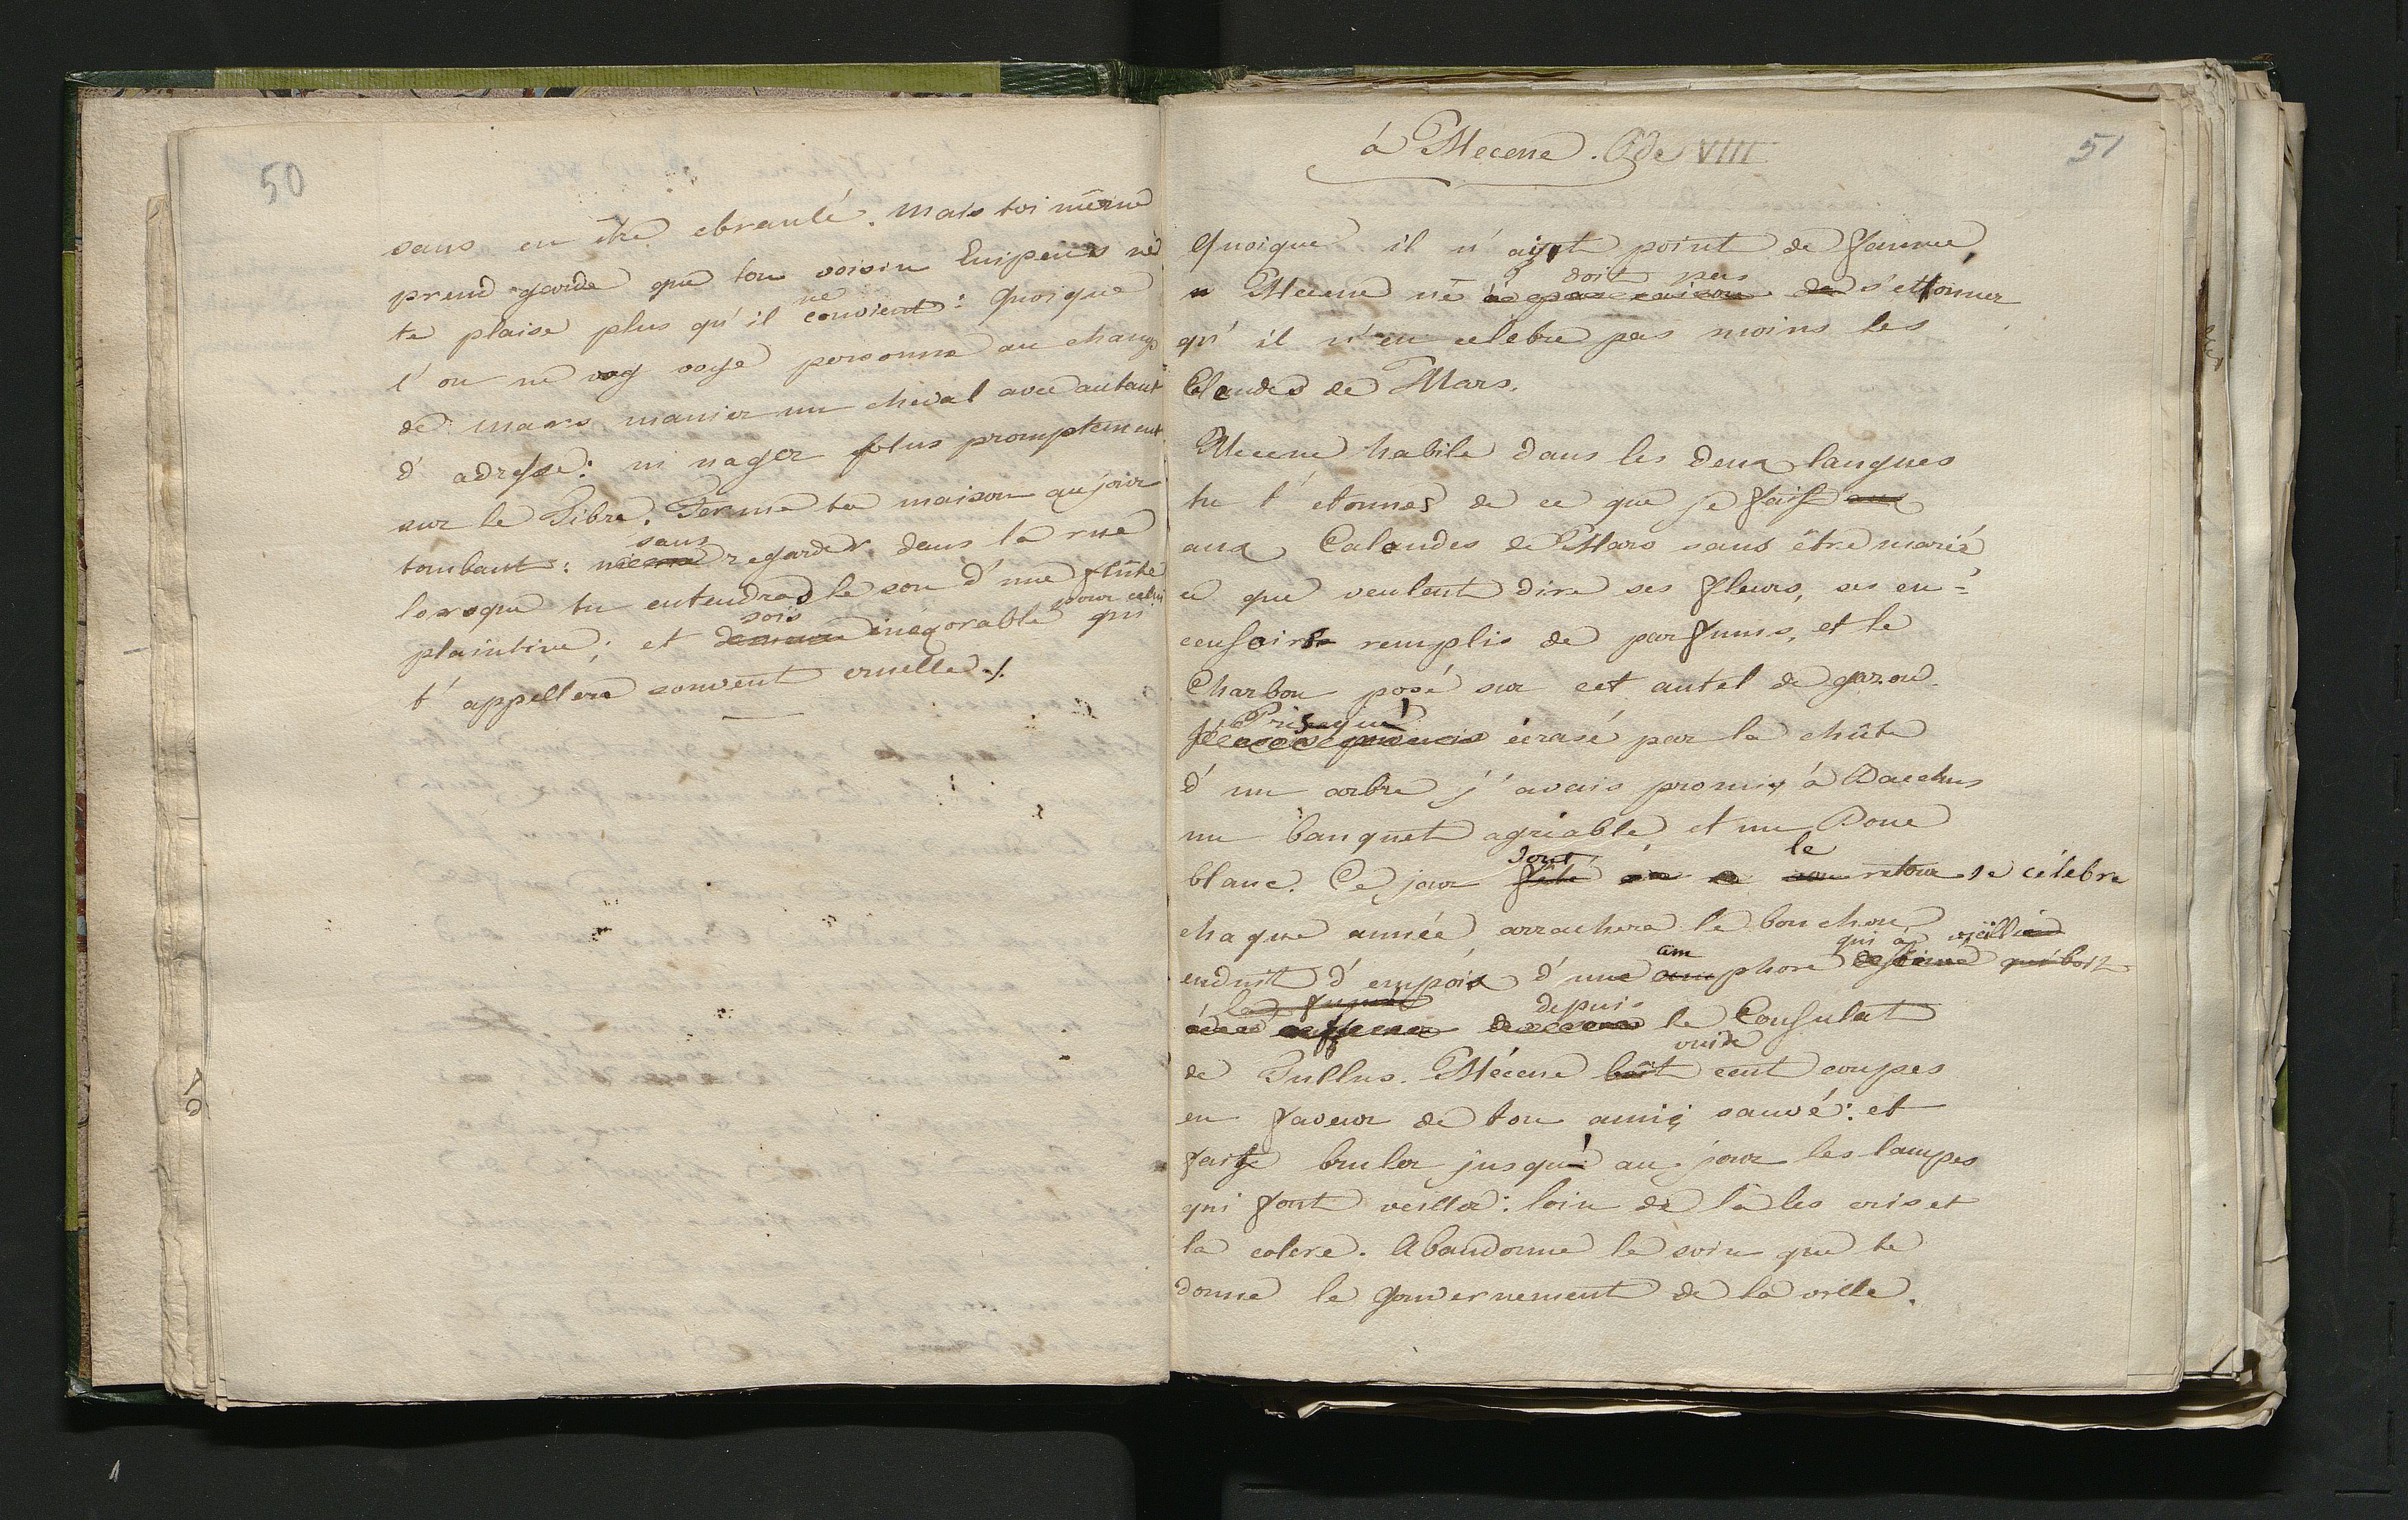 50
sans en être ebranlé. Mais toi même
prend garde que ton voisin Enipeus ne
te plaise plus qu'il ne convient : quoique
l'on ne voy voye personne au champ
de mars manier un cheval avec autant
d'adresse : ni nager plus promptement
sur le Tibre. Ferme ta maison au jour
tombant : sans regarder dans la rue
lorsque tu entendras le son d'une flûte
plaintive ; et sois inéxorable pour celui qui
t'appellera souvent cruelle./.
51
à Mecene. Ode VIII
Quoique il n'ayt point de femme,
Mecene ne doit pas de s'ettonner
qu'il n'en celebre pas moins les
Clandes de Mars.
Mecene habile dans les deux langues
tu t'etonnes de ce que je fais
aux Calandes de Mars sans être marié
ce que veulent dire ses fleurs, ses en-
censoirs remplis de parfums, et le
Charbon posé sur cet autel de gazon
Presque écrasé par la chûte
d'un arbre j'avais promis à Bacchus
un banquet agréable et un Bouc
blanc. Ce jour dont fêté le retour se célebre
chaque année arrachera le bouchon
enduit d'empois d'une amphore qui a vieilli qui boit
la fumée depuis le Consulat
de Tullus. Mécene boit vuide cent coupes
en faveur de ton ami sauvé : et
fais bruler jusqu'au jour les lampes
qui font veiller : loin de là les cris et
la colere. Abandonne le soin que te
donne le gouvernement de la ville.